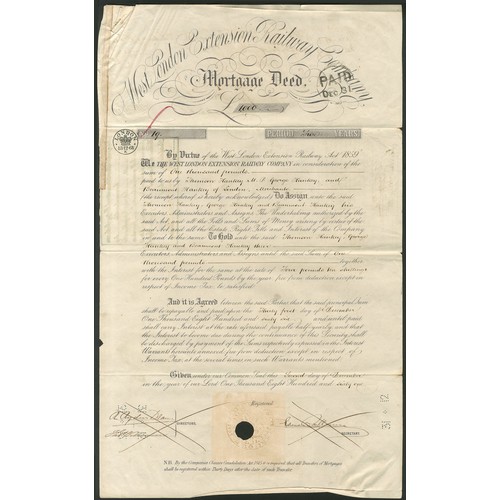 West London Extension Railway
Mortgage Deed.
PAID
Dec. 31
£ 1000
LONDON
No. 19.
YEARS
By Virtue of the West London Extension Railway Act 1859
We THE WEST LONDON EXTENSION RAILWAY COMPANY in consideration of the
sum of One thousand pounds
paid to us by Thomson Hankey M.P. George Hankey, and
Beaumont Hankey of London, Merchants
Do Assign unto the said
Thomson Hankey, George Hankey and Beaumont Hankey their
Executors Administrators and Assigns the Undertaking authorised by the
said Act and all the Tolls and Sums of Money arising by virtue of the
said Act and all the Estate Right Title and Interest of the Company
in and to the same To Hold unto the said Thomson Hankey, George
Hankey and Beaumont Hankey their
Executors Administrators and Assigns until the said Sum of One
thousand pounds together
with the Interest for the same at the rate of Four pounds ten shillings
for every One Hundred Pounds by the year free from deduction except in
respect of Income Tax be satisfied.
And it is Agreed between the said Parties that the said principal Sum
shall be repayable and paid upon the Thirty first day of December
One Thousand Eight Hundred and Sixty one; and until paid
shall carry Interest at the rate aforesaid payable half yearly and that
the Interest to become due during the continuance of this Security shall
be discharged by payment of the Sums respectively expressed in the Interest
Warrants hereunto annexed free from deduction except in respect of
Income Tax at the several times in such Warrants mentioned.
Given under our Common Seal this Second day of December
in the year of our Lord One Thousand Eight Hundred and sixty
Registered.
DIRECTORS.
SECRETARY.
N.B. By the Companies Clauses Consolidation Act 1845 it is required that all Transfers of Mortgages
shall be registered within Thirty Days after the date of such Transfer.